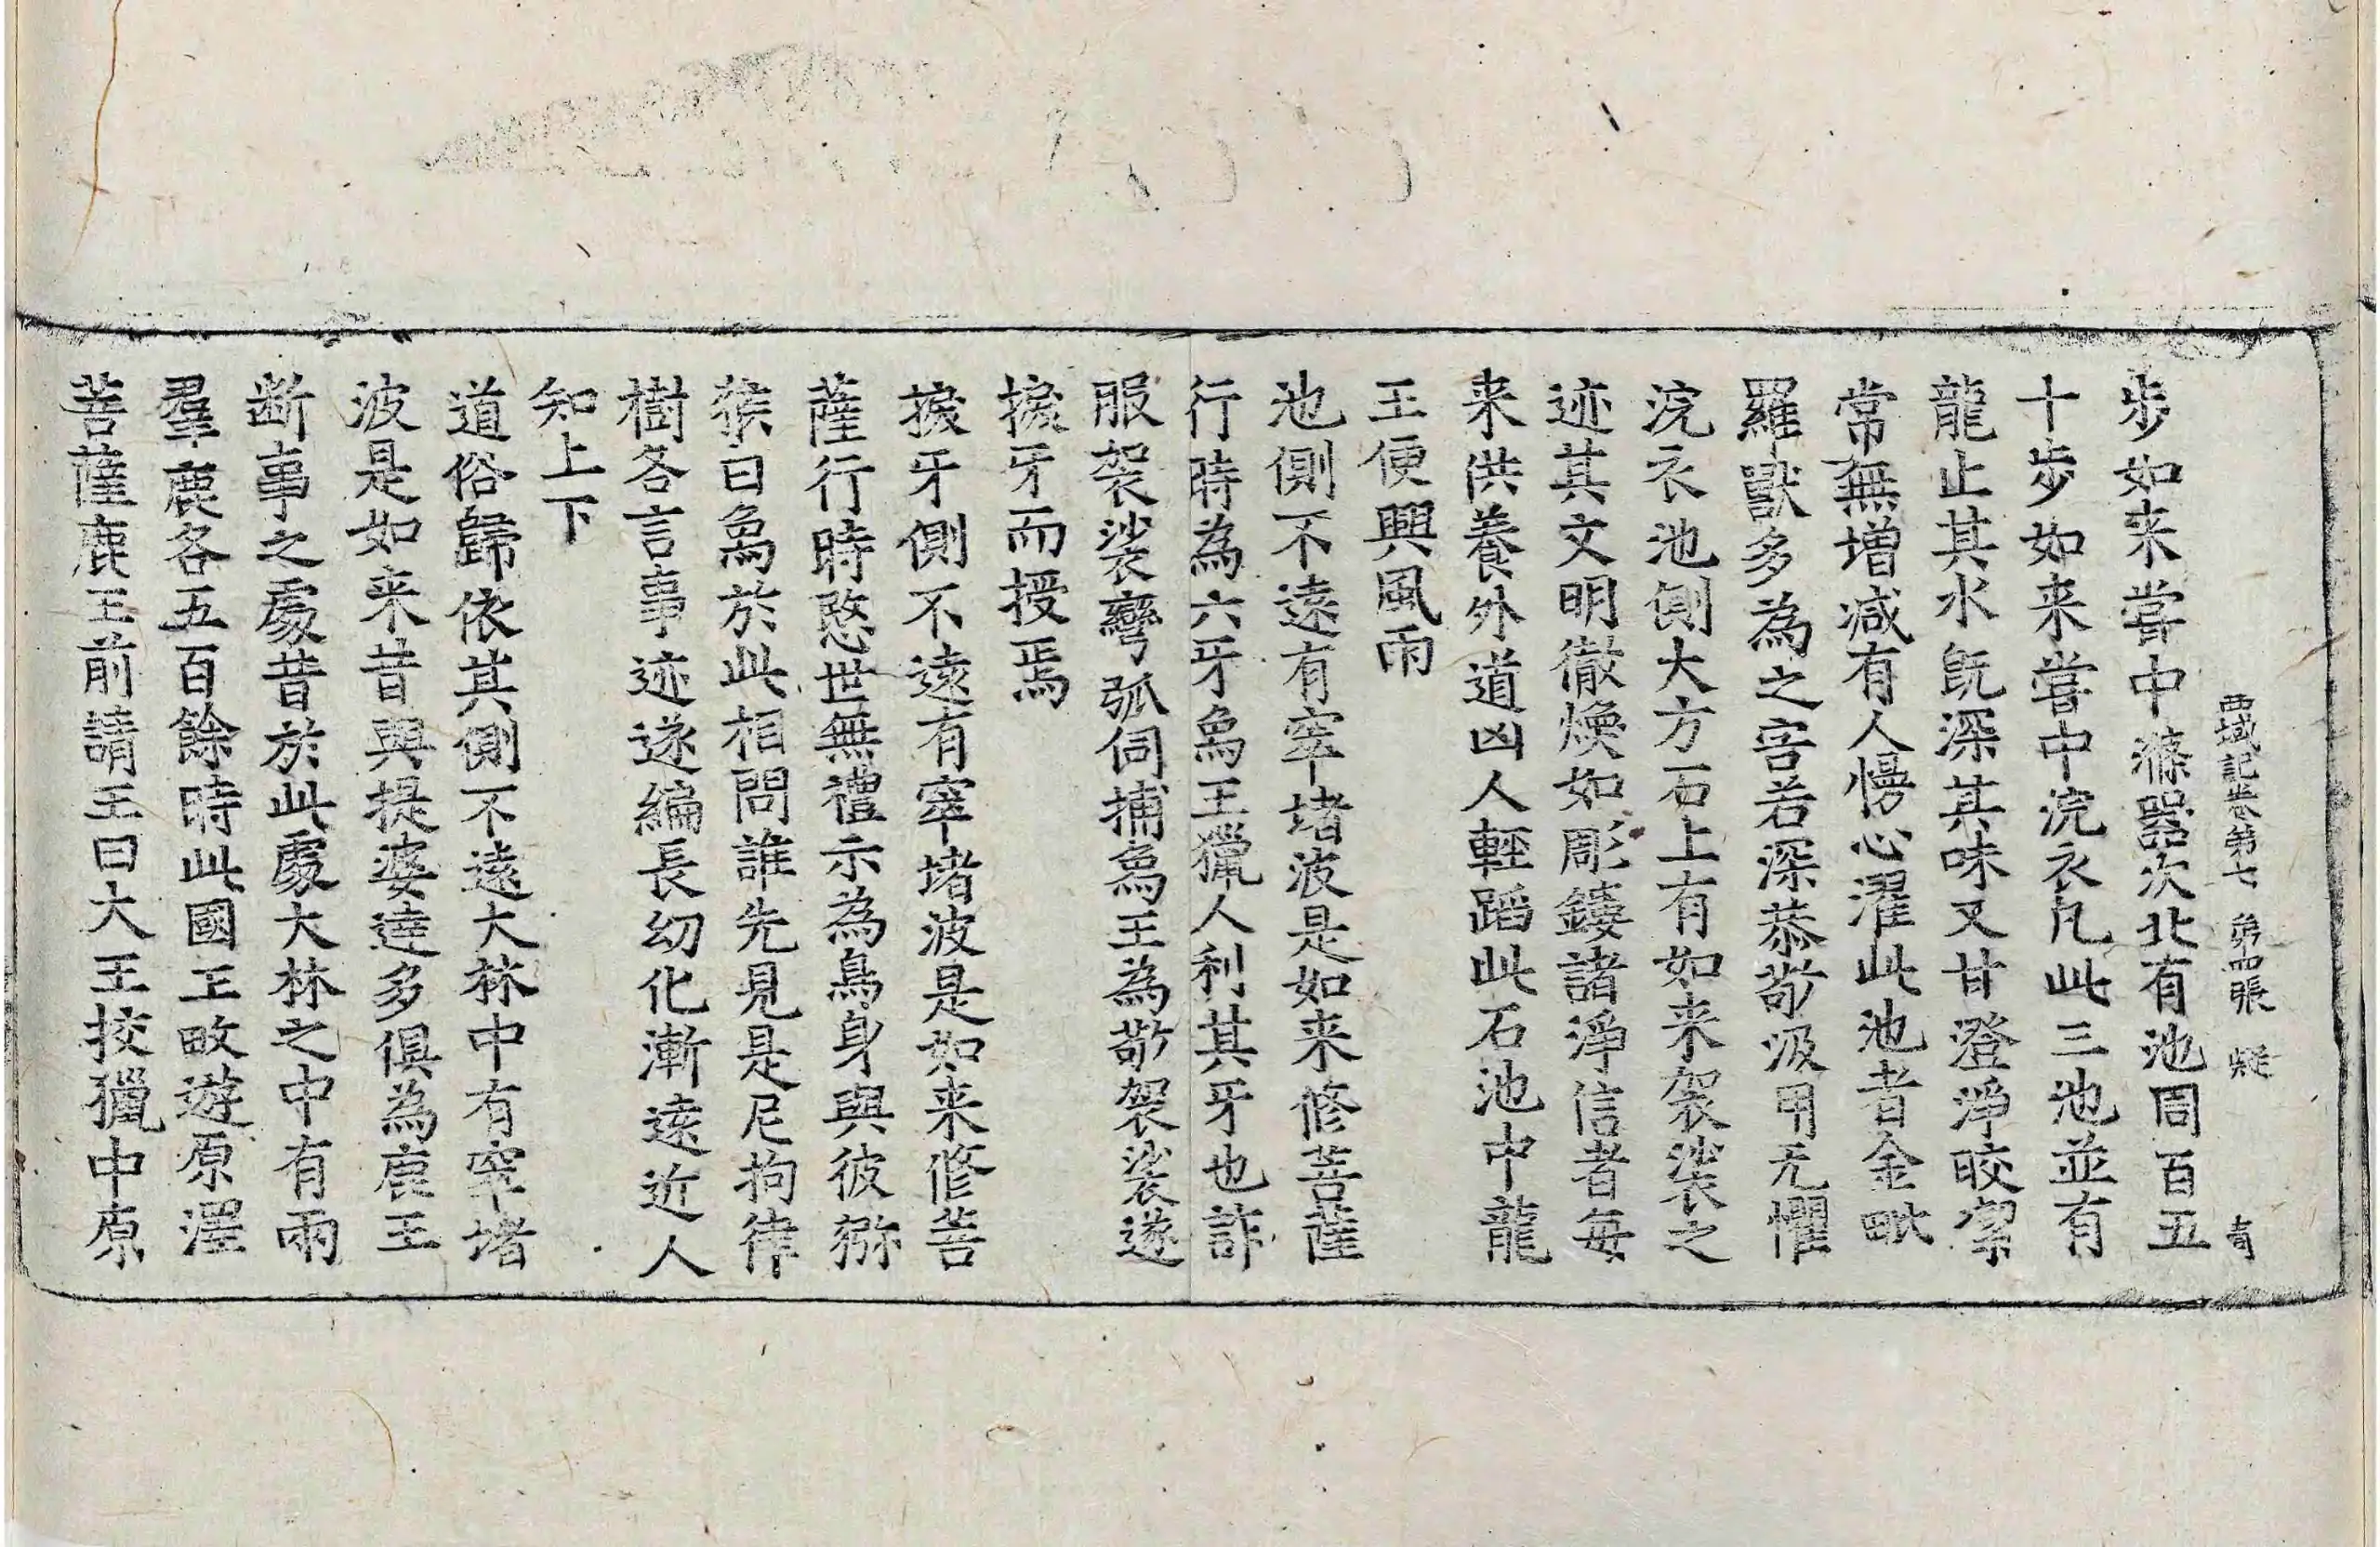 西域記卷第七 第四張 疑 奇
步如来嘗中滌器次北有池周百五
十步如来嘗中浣衣凡此三池並有
龍止其水旣深其味又甘澄淨皎潔
常無增減有人慢心濯此池者金毗
羅獸多為之害若深恭敬汲用无懼
浣衣池側大方石上有如来袈裟之
迹其文明徹煥如彫鏤諸淨信者每
来供養外道凶人輕蹈此石池中龍
王便興風雨
池側不遠有窣堵波是如来修菩薩
行時為六牙象王獵人利其牙也詐
服袈裟彎弧伺捕象王為敬袈裟遂
捩牙而授焉
捩牙側不遠有窣堵波是如来修菩
薩行時愍世無禮示為鳥身與彼猕
猴白象於此相問誰先見是尼拘律
樹各言事迹遂編長幼化漸遠近人
知上下
道俗歸依其側不遠大林中有窣堵
波是如来昔與提婆達多俱為鹿王
断事之處昔於此處大林之中有兩
羣鹿各五百餘時此國王畋遊原澤
菩薩鹿王前請王曰大王挍獵中原